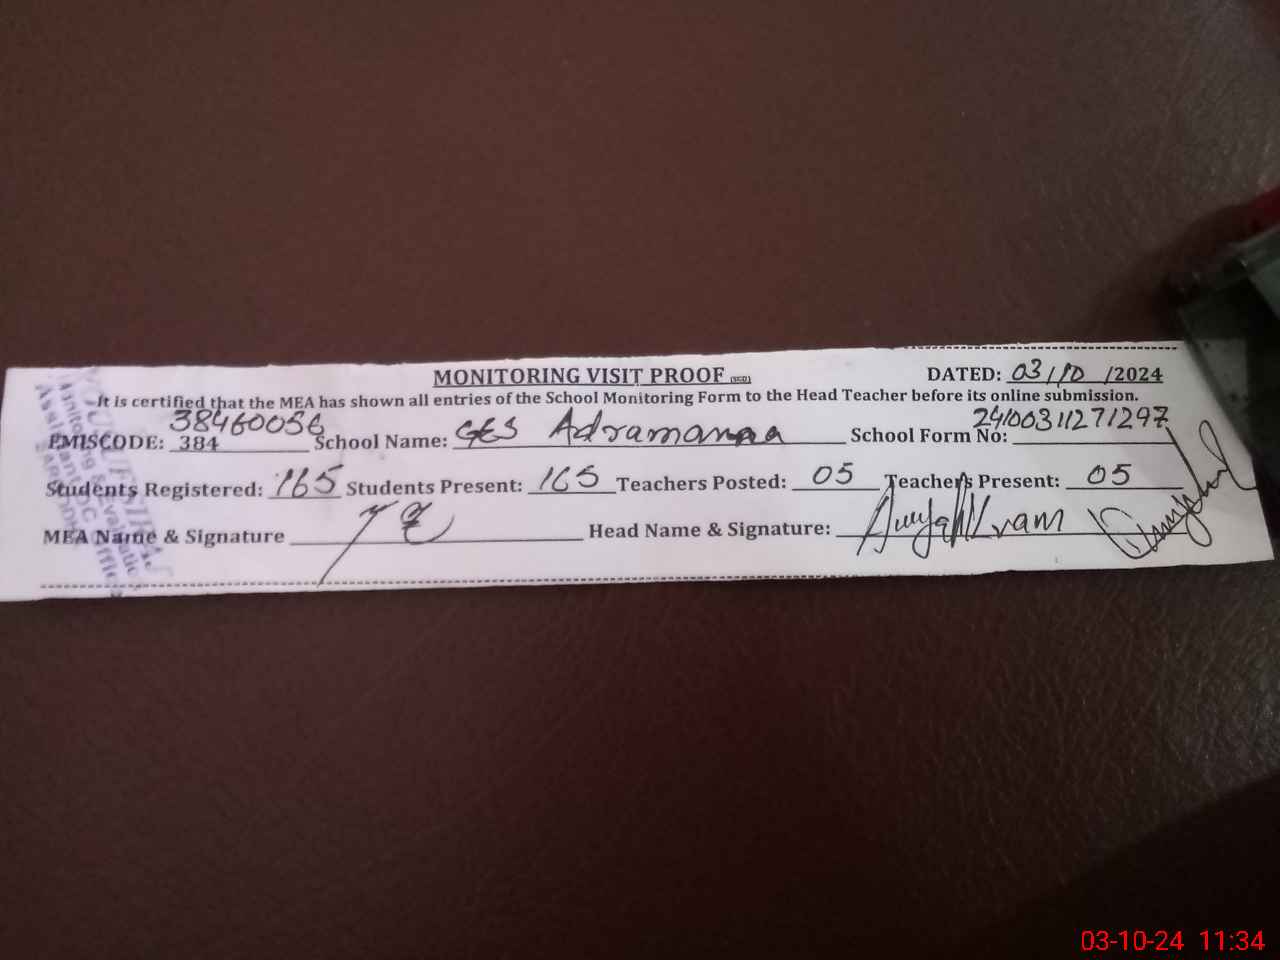 MONITORING VISIT PROOF
DATED: 03/10/2024
It is certified that the MEA has shown all entries of the School Monitoring Form to the Head Teacher before its online submission.
EMISCODE: 384 38460056 School Name: GES Adramanaa School Form No: 24100311271297
Students Registered: 165 Students Present: 165 Teachers Posted: 05 Teachers Present: 05
MEA Name & Signature Head Name & Signature:
03-10-24 11:34